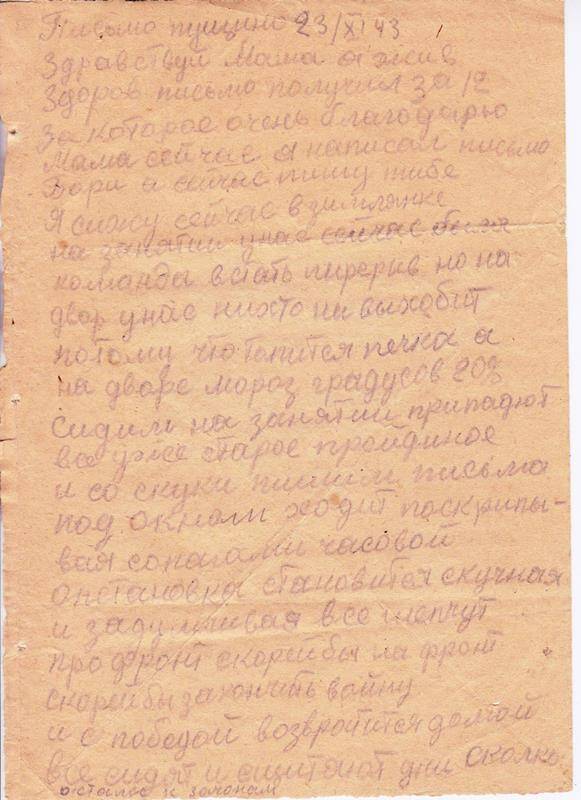 Письмо пущино 23/XI 43
Здравствуй Мама я жив
Здоров письмо получил за 12
за которое очень благодарю
Мама сейчас я написал письмо
Бори а сейчас пишу тибе
Я сижу сейчас в зимлянке
на занятии унас сейчас была
команда встать пирерыв но на
двор унас никто ни выходит
потому что топится печка а
на дворе мороз градусов 20
сидим на занятии припадют
все уже старое пройдиное
и со скуки пишим письма
под окном ходит поскрипы-
вая сопагами часовой
опстановка становится скучная
и задумчивая все шепчут
про фронт скорейбы на фронт
скорейбы закончить войну
и с победой возвротится домой
все сидят и сщитают дни сколко
осталос к